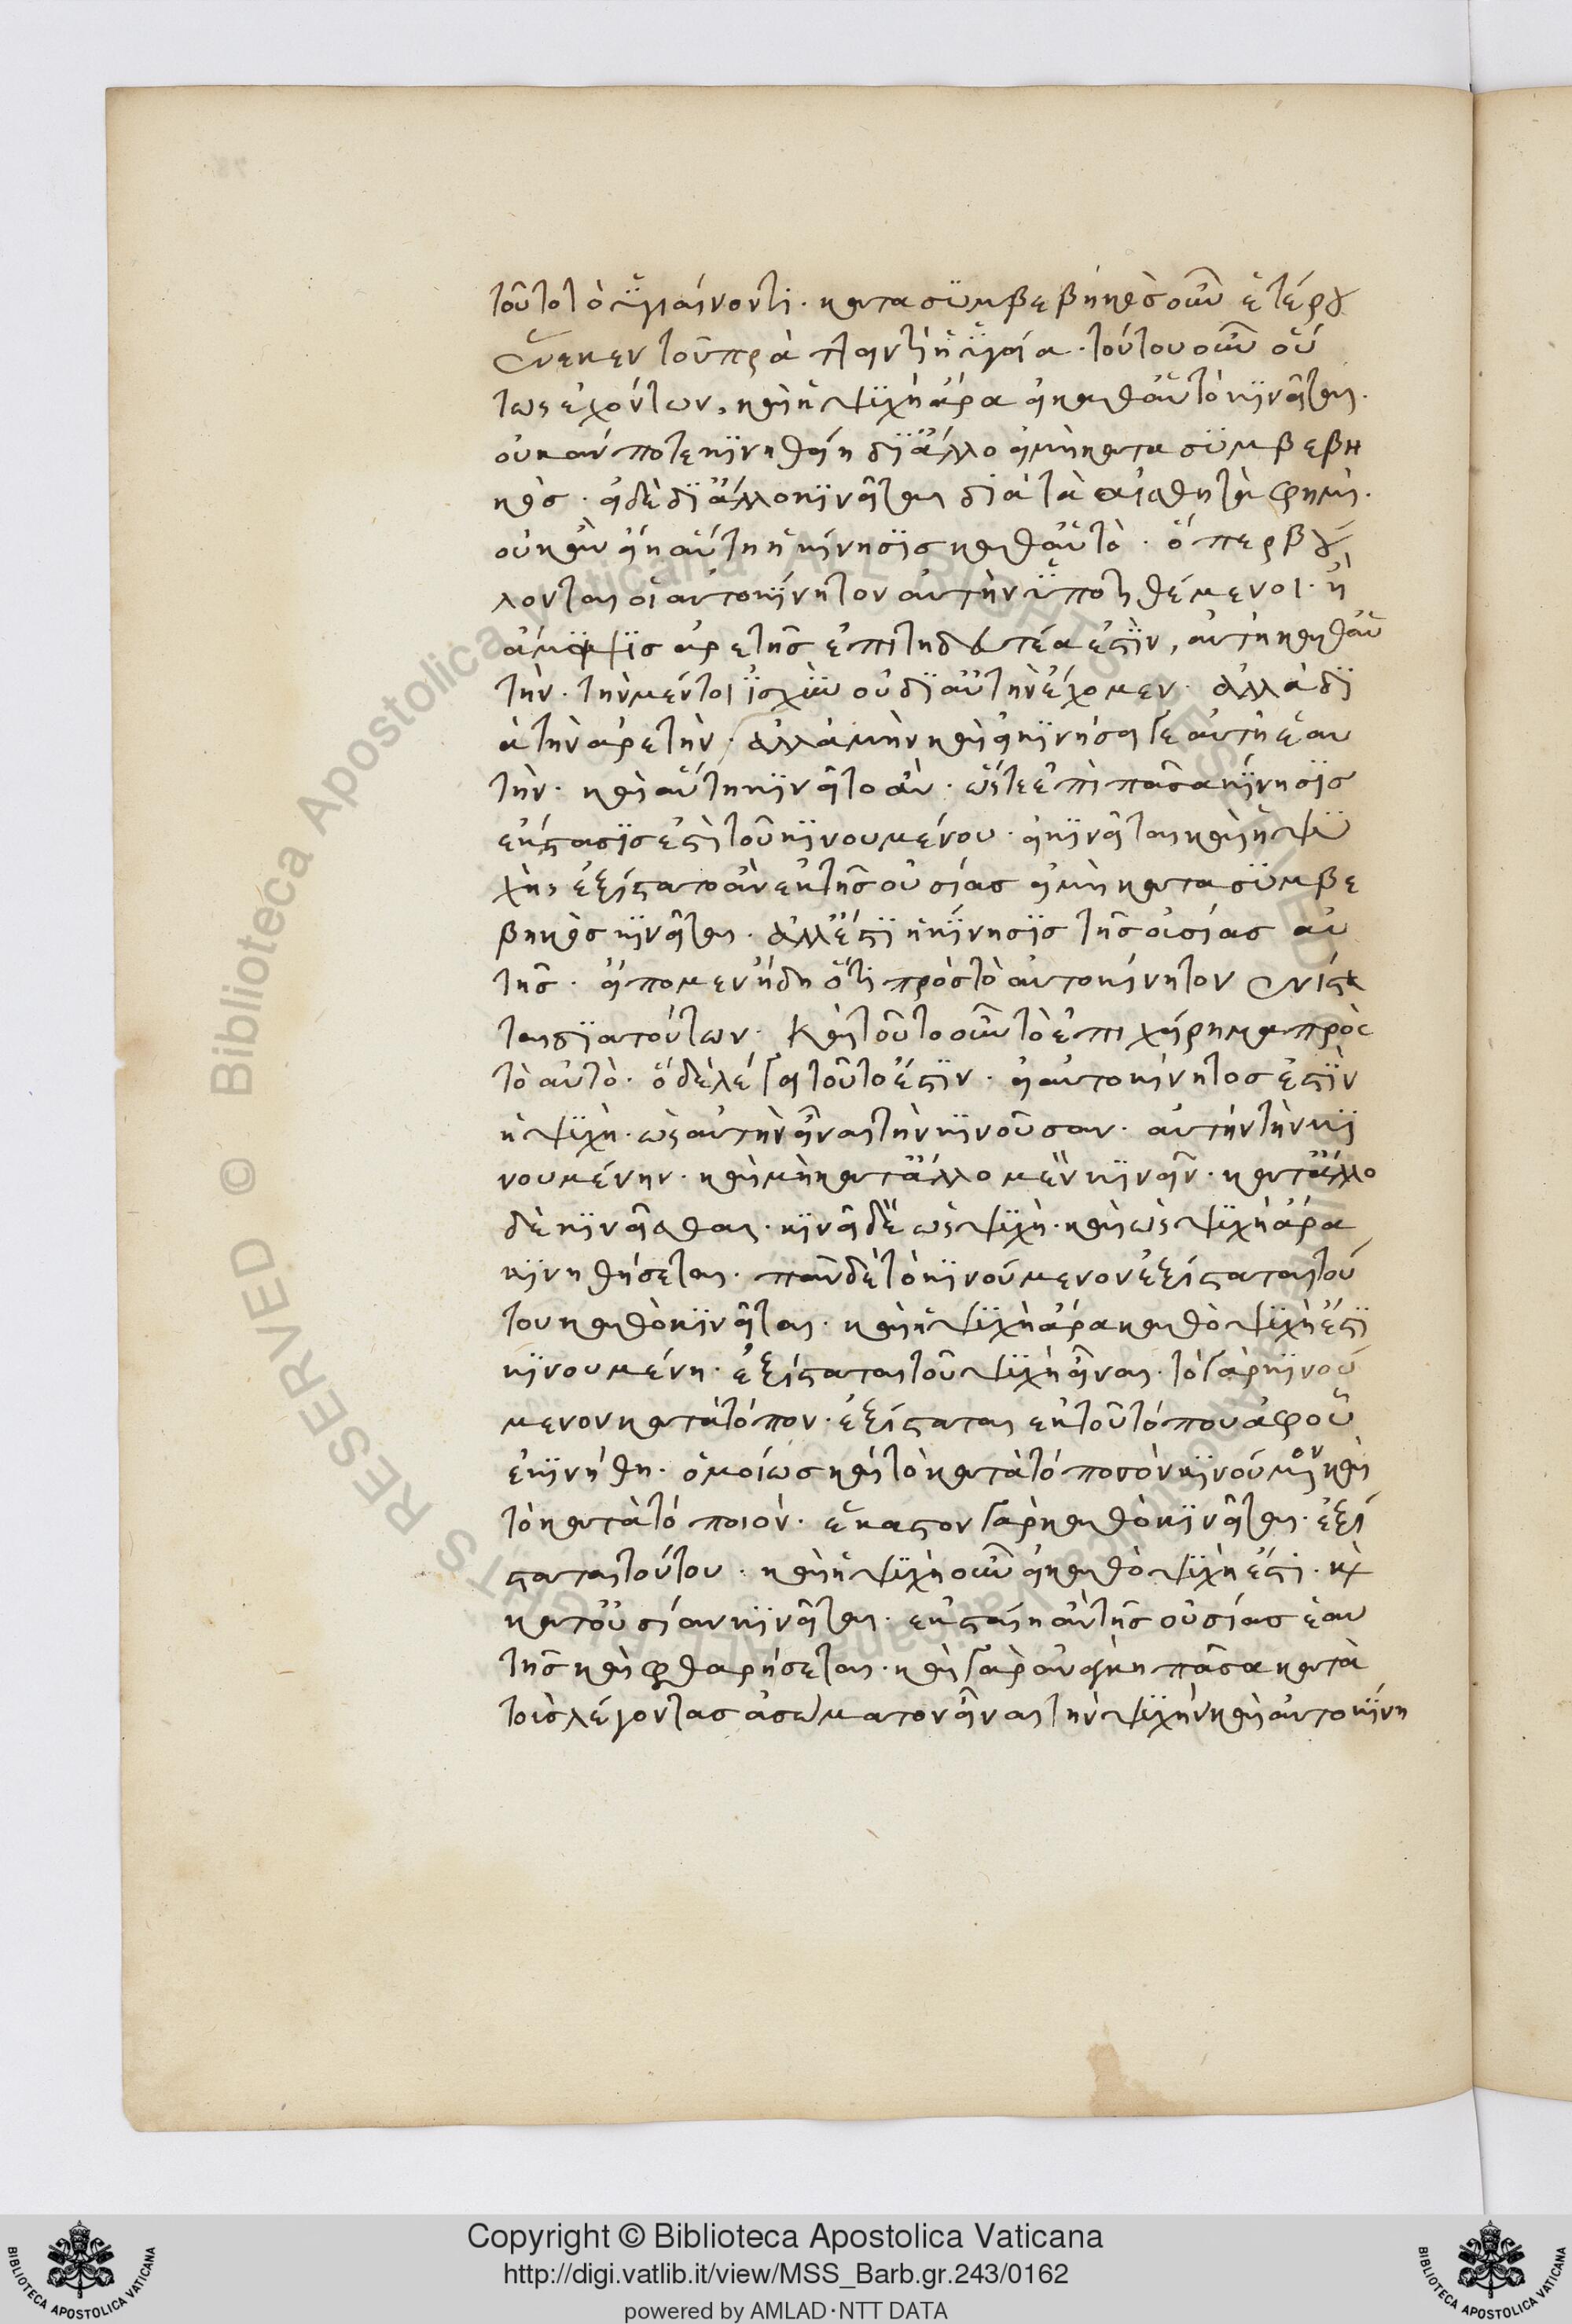 τοῦτο τὸ ὑγιαίνοντι· κατα συμβεβηκὸς οὖν ἑτέρου
ἕνεκεν τοῦ πρὰ παντὶ ἡ ὑγεία· τούτου οὖν οὕ
τως εχόντων, καὶ ἡ ψυχὴ ἄρα εἰ καθ αὑτὸ κινεῖται·
ουκ ἄν ποτε κινηθείη δι ἄλλο εἰμὴ κατα συμβεβη
κὸς· εἰ δὲ δι ἄλλο κινεῖται διὰ τὰ αἰσθητὰ φημὶ·
οὐκ ἂν εἴη αὕτη ἡ κίνησις καθ αὑτὸ· ὅπερ βού
λονται οἱ αυτοκίνητον αυτὴν ὑποτιθέμενοι· ἢ
ἄμειψις αρετῆς ἐπιτηδευτέα εστὶν, αυτὴ καθ αὑ
τὴν· τὴν μέντοι ϊσχὺν οὐ δι αὑτὴν ἔχομεν· ἀλλὰ δι
ὰ τὴν αρετὴν· ἀλλὰ μὴν καὶ εἰ κινήσει γε αυτὴ ἑαυ
τὴν· καὶ αὕτη κινεῖτο ἂν· ὥστε ἐπὶ πᾶσα κίνησις
εκστασις ἐστὶ τοῦ κινουμένου· εἰ κινεῖται καὶ ἡ ψυ
χὴ, ἐξίστατο ἂν ἐκ τῆς οὐσίας εἰ μὴ κατα συμβε
βηκὸς κινεῖται· ἀλλ ἔστι ἡ κίνησις τῆς οὐσίας αυ
τῆς· εἴπομεν ἤδη ὅτι πρὸς τὸ αυτοκίνητον ενίστα
ται δια τούτων· Καὶ τοῦτο οὖν τὸ ἐπιχείρημα πρὸς
τὸ αυτὸ· ὅ δὲ λέγει τοῦτο ἐστὶν· εἰ αυτοκίνητος ἐστὶν
ἡ ψυχὴ· ὡς αυτὴν εἶναι τὴν κινοῦσαν· αυτήν τὴν κι
νουμένην· καὶ μὴ κατ ἄλλο μὲν κινεῖν· κατ ἄλλο
δὲ κινεῖσθαι· κινεῖ δὲ ὡς ψυχὴ· καὶ ὡς ψυχὴ ἄρα
κινηθήσεται· πᾶν δὲ τὸ κινούμενον ἐξίσταται τού
του καθὸ κινεῖται· καὶ ἡ ψυχὴ ἄρα καθὸ ψυχὴ ἔστι
κινουμένη· ἐξίσταται τοῦ ψυχὴ εἶναι· τὸ γὰρ κινού
μενον κατὰ τόπον· ἐξίσταται ἐκ τοῦ τόπου ἀφ οὗ
ἐκινήθη· ὁμοίως καὶ τὸ κατὰ τό ποσὸν κινούμενον καὶ
τὸ κατὰ τό ποιόν· ἕκαστον γὰρ καθὸ κινεῖται· ἐξί
σταται τούτου· καὶ ἡ ψυχὴ οὖν εἰ καθὸ ψυχὴ ἔστι· κ
κατ οὐσίαν κινεῖται· ἐκσταίη ἂν τῆς οὐσίας ἑαυ
τῆς καὶ φθαρήσεται· καὶ γὰρ ἀνάγκη πᾶσα κατὰ
τοὺς λέγοντας ἀσώματον εἶναι τὴν ψυχὴν καὶ αυτοκίνη
Copyright © Biblioteca Apostolica Vaticana
http://digi.vatlib.it/view/MSS_Barb.gr.243/0162
powered by AMLAD·NTT DATA